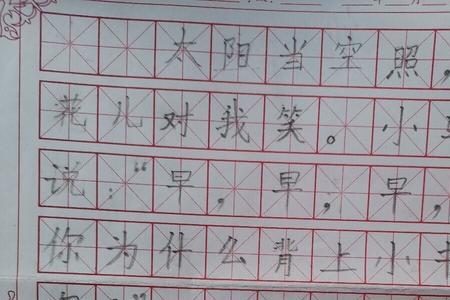 太阳当空照,
花儿对我笑。小
说:“早,早,早,
你为什么背上小